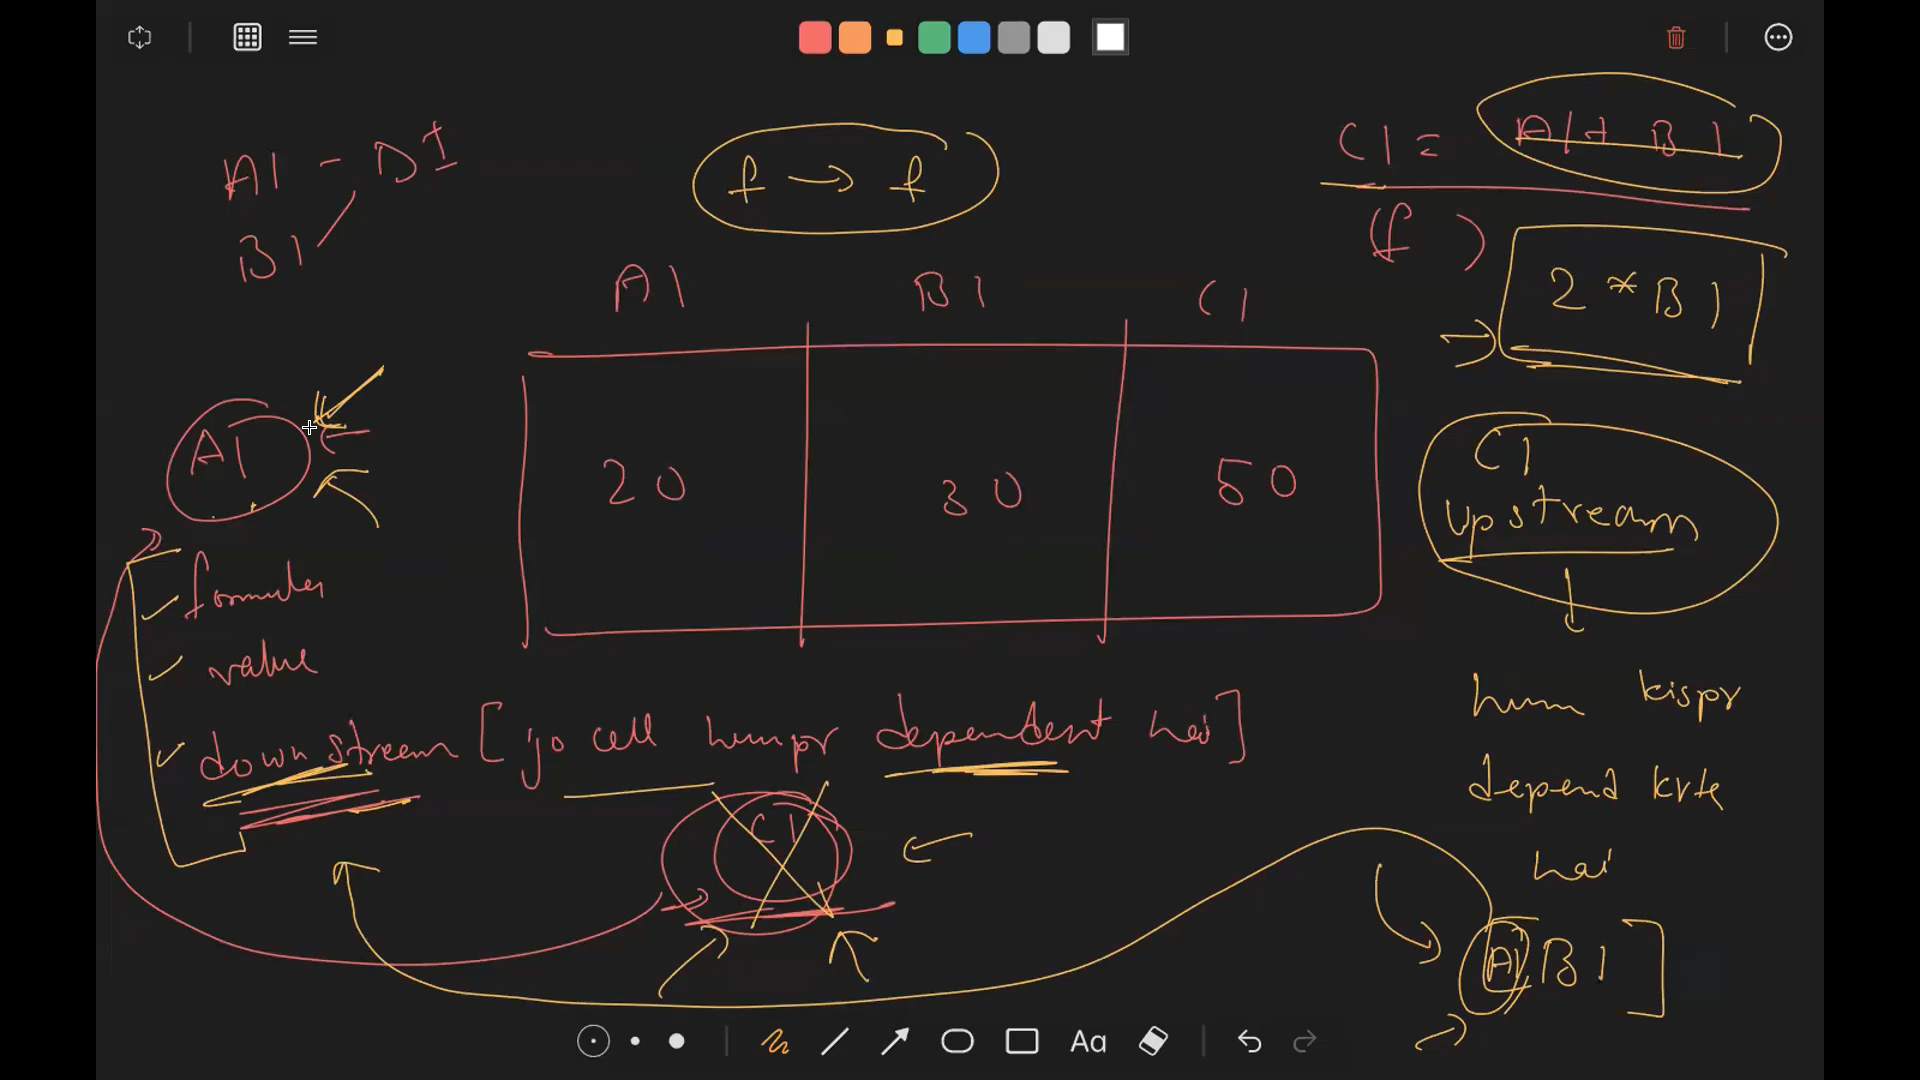 A1 - D1
B1
f → f
C1 = A1 + B1
(f)
2 * B1
A1 B1 C1
20 30 50
A1
C1
upstream
formula
value
downstream [jo cell humpr dependent hai]
C1
hum kispr
depend krte
hai
A1 B1]
Aa